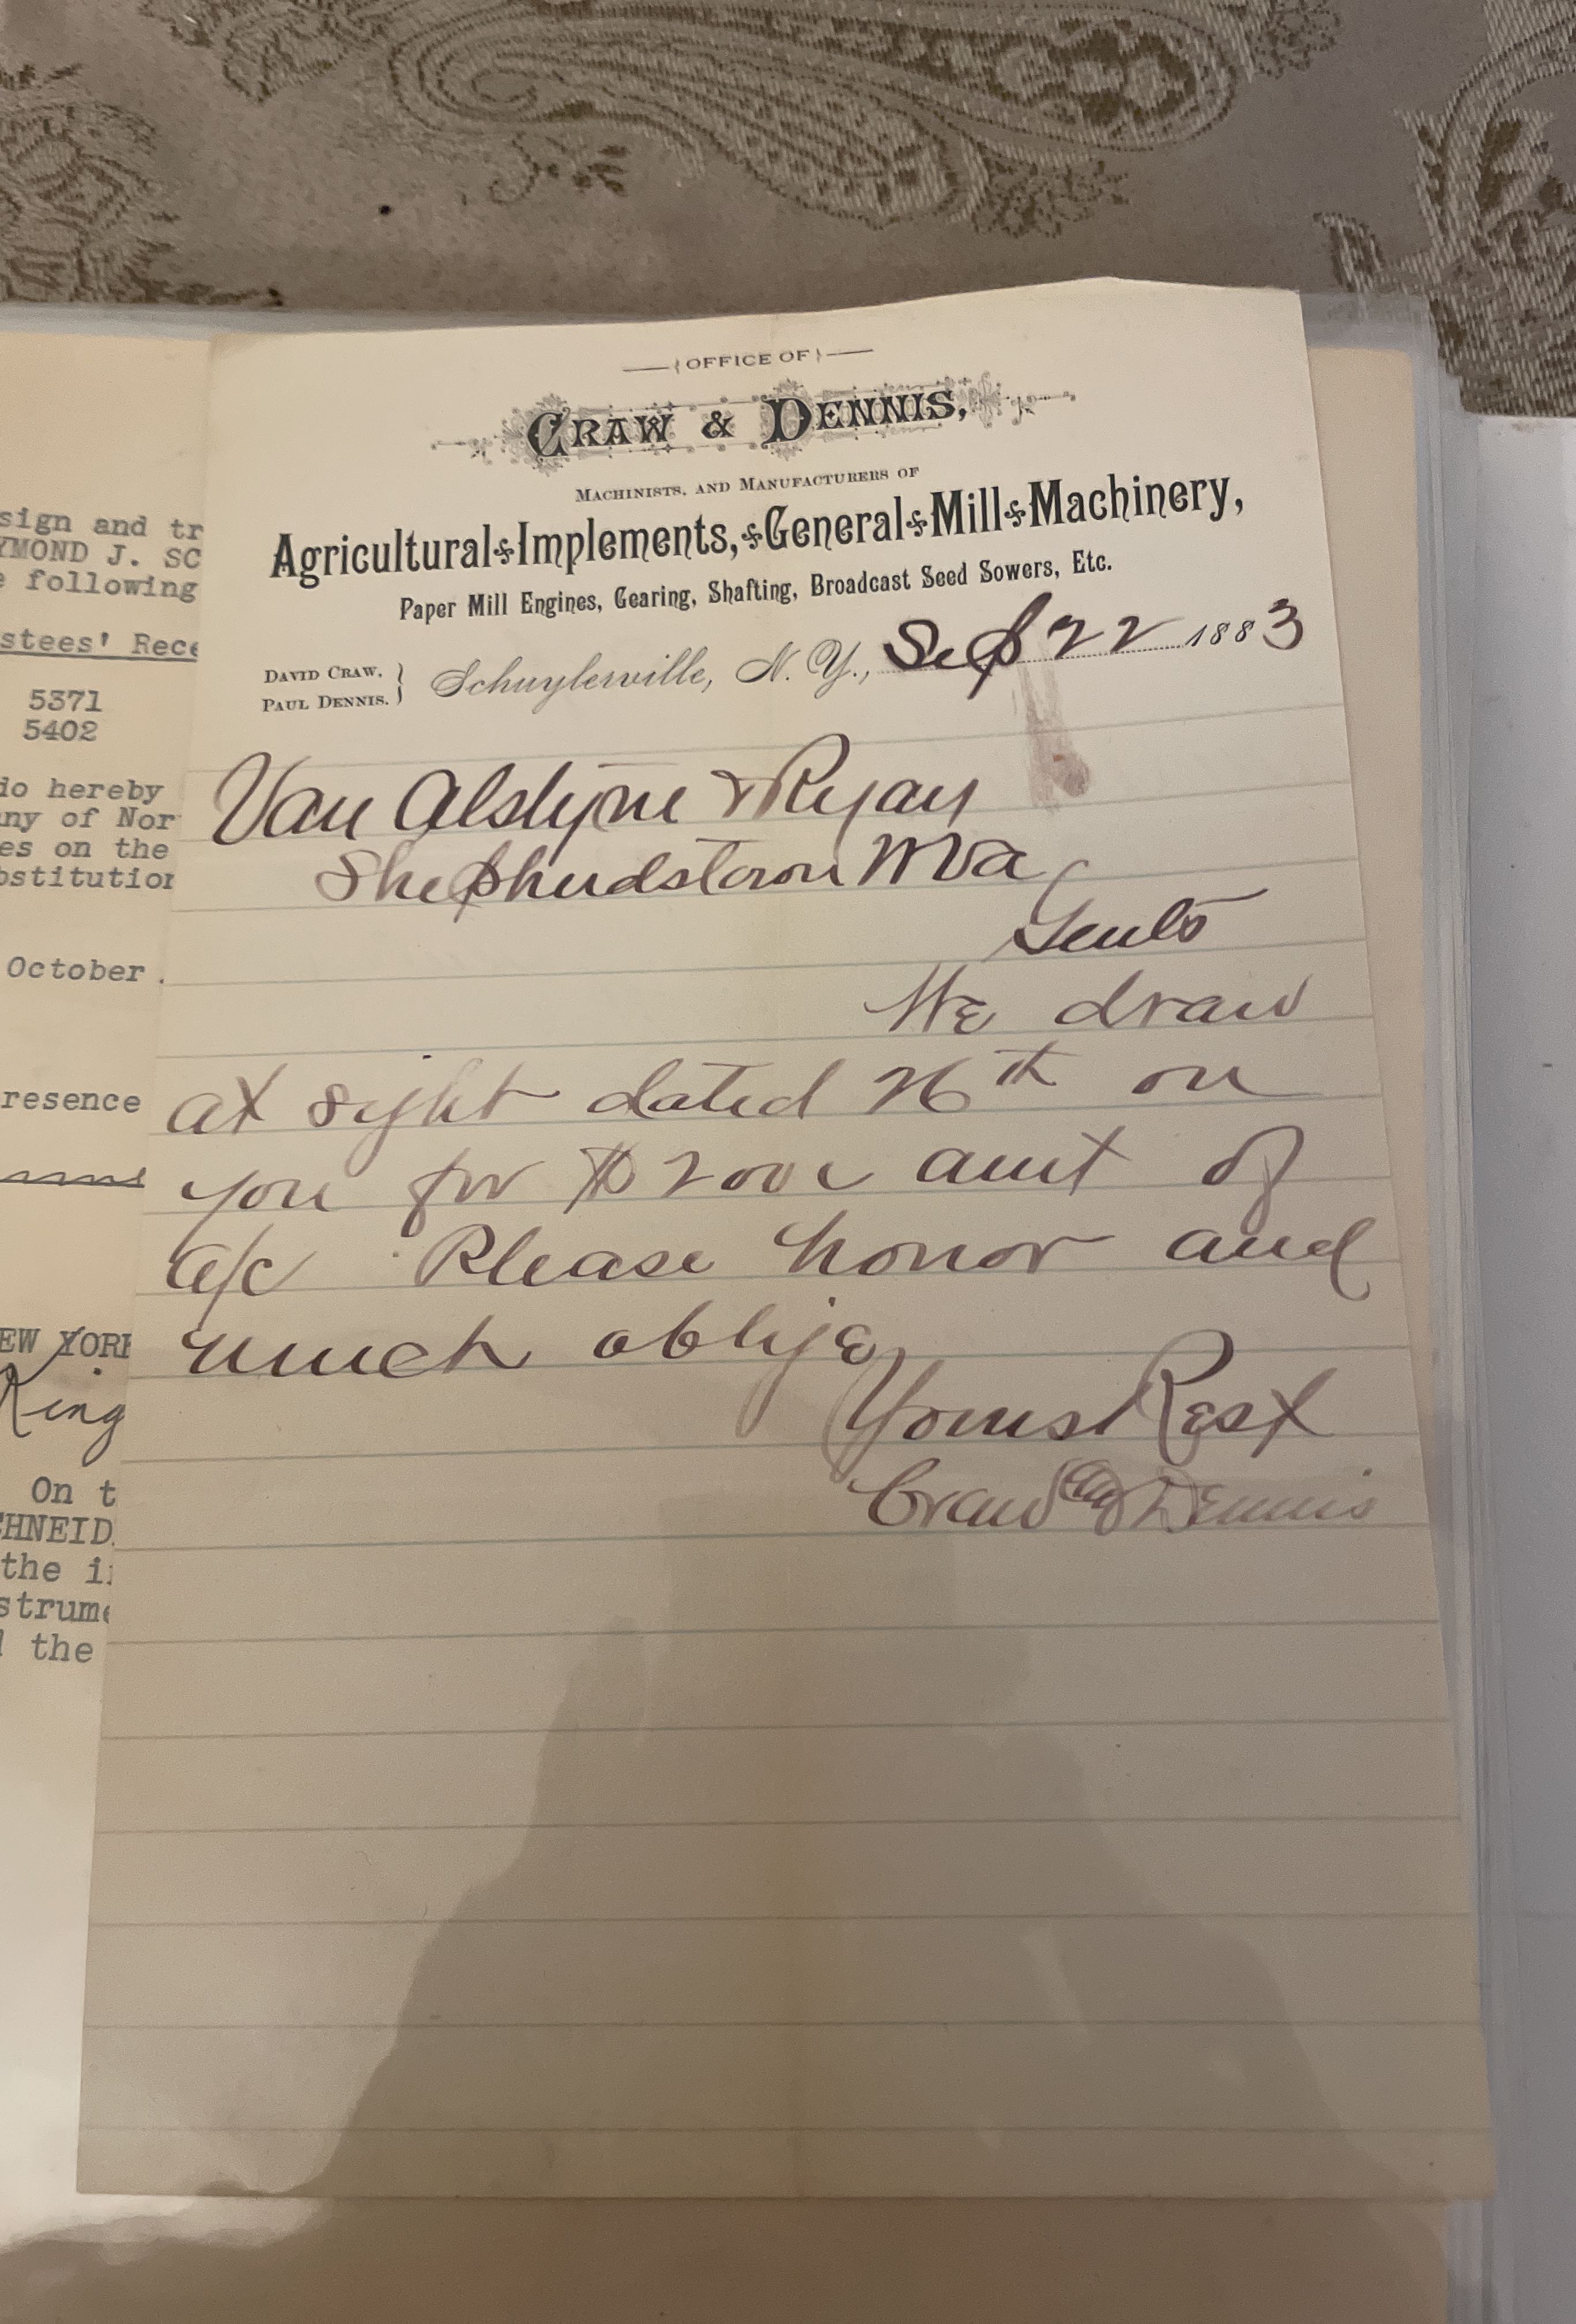 OFFICE OF
CRAW & DENNIS,
MACHINISTS, AND MANUFACTURERS OF
Agricultural Implements, General Mill Machinery,
Paper Mill Engines, Gearing, Shafting, Broadcast Seed Sowers, Etc.
DAVID CRAW.
PAUL DENNIS.
Schuylerville, N. Y., Sept 22 1883
Van Alstyne & Ryan
Shepherdstown W Va
Gents
We draw
at sight dated 26th on
you for $ amt of
a/c Please honor and
much oblige
Yours Rest
Craw & Dennis
sign and tr
YMOND J. SC
e following
stees' Rece
5371
5402
do hereby
ny of Nor
es on the
bstitution
October
resence
EW YORK
King
On t
CHNEID
the i
strume
d the